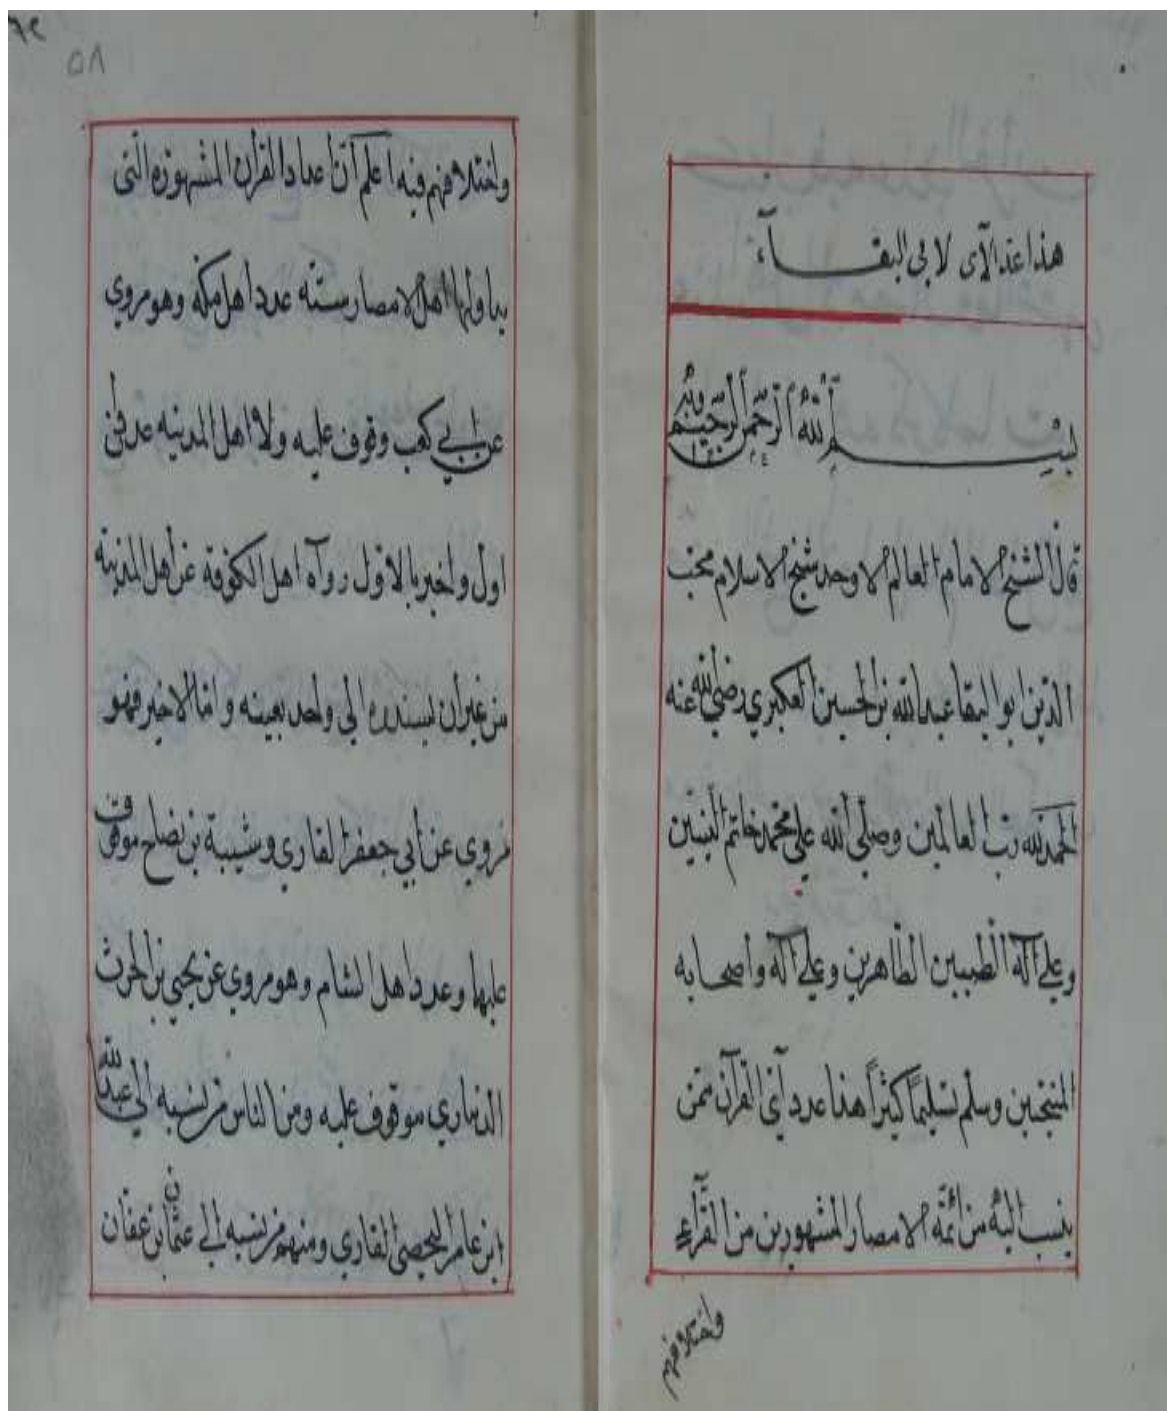 هذا عدد الآى لابي البقاء
بسم الله الرحمن الرحيم وبه
قال الشيخ الامام العالم الاوحد شيخ الاسلام محب
الدين ابو البقا عبد الله بن الحسين العكبري رضي الله عنه
الحمد لله رب العالمين وصلى الله على محمد خاتم النبيين
وعلى آله الطيبين الطاهرين وعلى آله واصحابه
المنتجبين وسلم تسليمًا كثيرًا هذا عدد آي القرآن ممن
ينسب اليه من ائمة الامصار المشهورين من القرآء
واختلافهم
٥٨
واختلافهم فيه اعلم أن اعداد القرآن المشهوره التى
اهل الامصار سته عدد اهل مكه وهو مروي
عن ابي كعب وقوف عليه ولا اهل المدينه
اول واخير بالاول روآه اهل الكوفة عن اهل المدينه
من غير أن يسندره الى واحد بعينه واما الاخير فهو
مروي عن أبي جعفر القاري وشيبة بن نصاح موقوف
عليها وعدد اهل الشام وهو مروي عن يحيى بن الحرث
الذماري موقوف عليه ومن الناس من نسبه الى عبد الله
ابن عامر اليحصبى القاري ومنهم من نسبه الى عثمان بن عفان